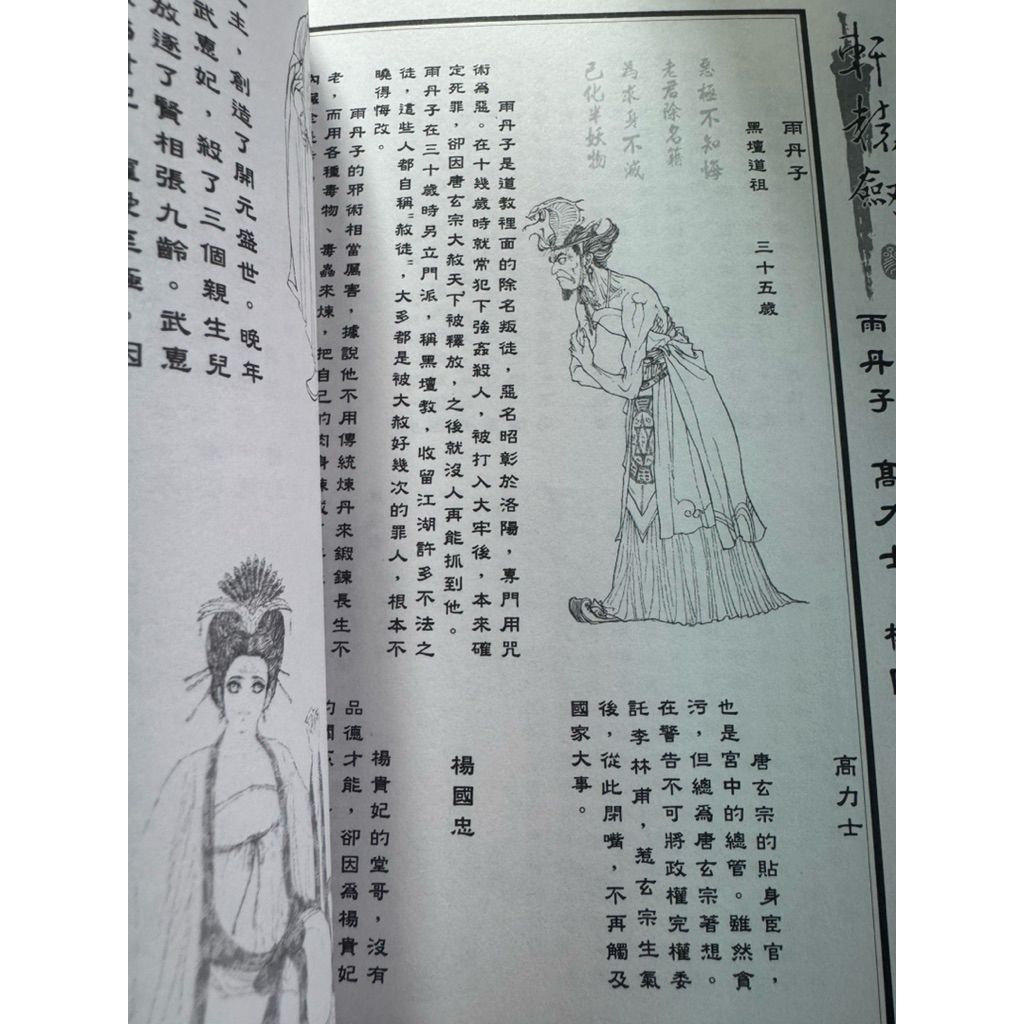 軒轅劍
雨丹子　高力士　楊國
雨丹子
黑壇道祖　三十五歲
惡極不知悔
老君除名籍
為求身不滅
己化半妖物
雨丹子是道教裡面的除名叛徒，惡名昭彰於洛陽，專門用咒
術為惡。在十幾歲時就常犯下強姦殺人，被打入大牢後，本來確
定死罪，卻因唐玄宗大赦天下被釋放，之後就沒人再能抓到他。
雨丹子在三十歲時另立門派，稱黑壇教，收留江湖許多不法之
徒，這些人都自稱〝赦徒〞，大多都是被大赦好幾次的罪人，根本不
曉得悔改。
雨丹子的邪術相當厲害，據說他不用傳統煉丹來鍛鍊長生不
老，而用各種毒物、毒蟲來煉，把自己的肉身煉成
高力士
唐玄宗的貼身宦官，
也是宮中的總管。雖然貪
污，但總為唐玄宗著想。
在警告不可將政權完權委
託李林甫，惹玄宗生氣
後，從此閉嘴，不再觸及
國家大事。
楊國忠
楊貴妃的堂哥，沒有
品德才能，卻因為楊貴妃
主，創造了開元盛世。晚年
武惠妃，殺了三個親生兒
放逐了賢相張九齡。武惠